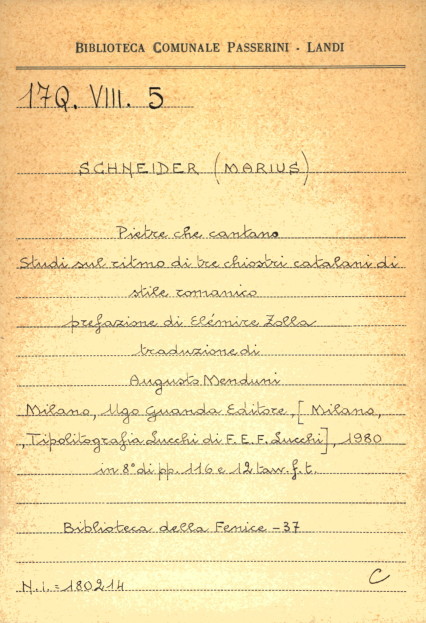 BIBLIOTECA COMUNALE PASSERINI - LANDI
17Q. VIII. 5
SCHNEIDER (MARIUS)
Pietre che cantano
Studi sul ritmo di tre chiostri catalani di
stile romanico
prefazione di Elémire Zolla
traduzione di
Augusto Menduni
Milano, Ugo Guanda Editore, [Milano,
Tipolitografia Lucchi di F.E.F. Lucchi], 1980
in 8° di pp. 116 e 12 tav. f. t.
Biblioteca della Fenice - 37
N.i. = 180214
C